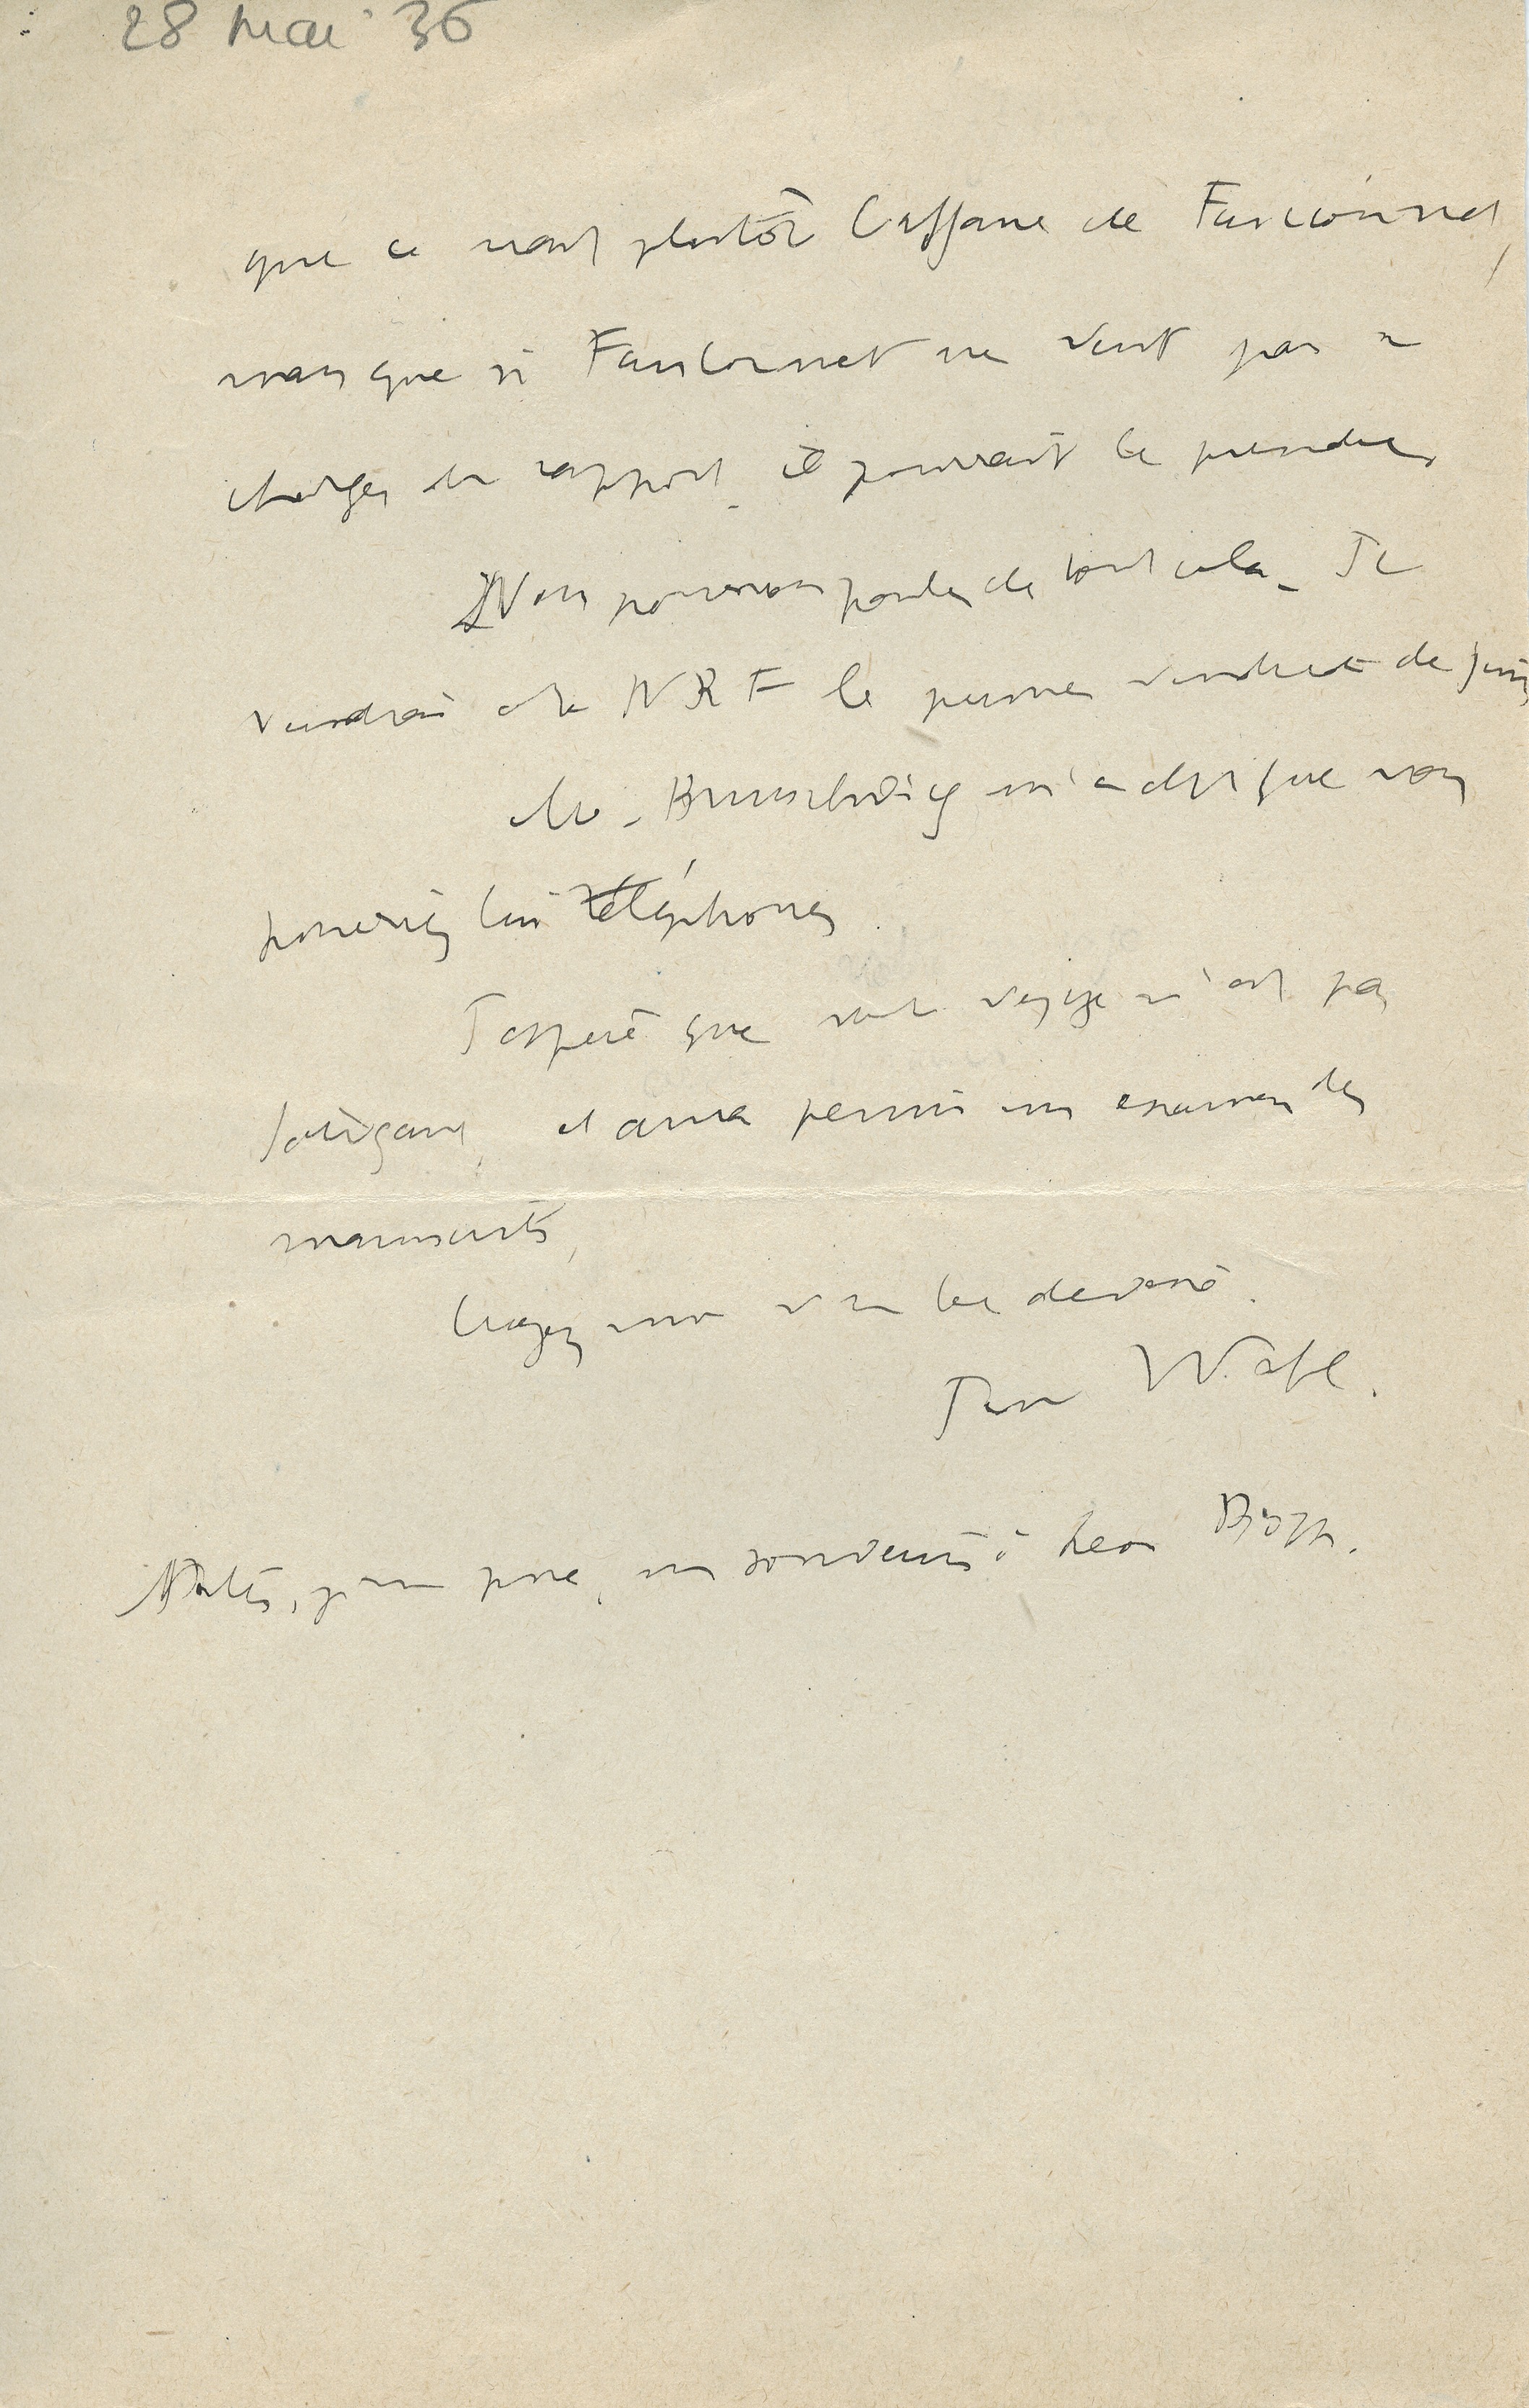 28 mai 36
que ce serait plutôt l'affaire de Fauconnet,
mais que si Fauconnet ne veut pas se
charger du rapport, il pourrait le prendre.
Nous pourrons parler de tout cela. Je
viendrai à la NRF le premier vendredi de juin
M. Brunschvicg m'a dit que vous
pouviez lui téléphoner.
J'espère que votre voyage n'est pas
fatigant, et aura permis un examen des
manuscrits,
Croyez moi v bien dévoué.
Jean Wahl.
je vous prie, un souvenir à Leon Bopp.